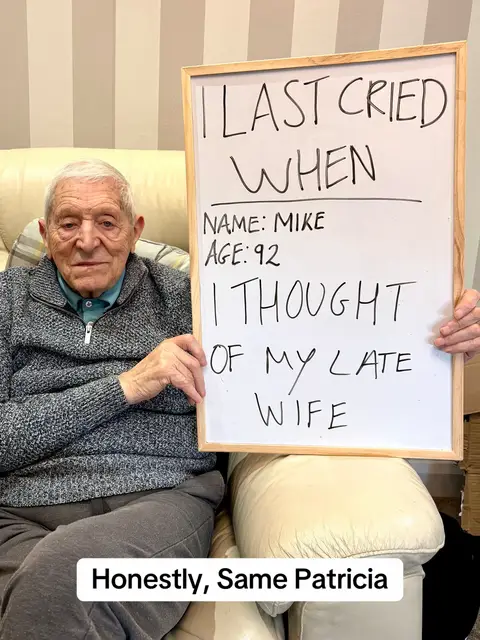 I LAST CRIED
WHEN
NAME: MIKE
AGE: 92
I THOUGHT
OF MY LATE
WIFE
Honestly, Same Patricia